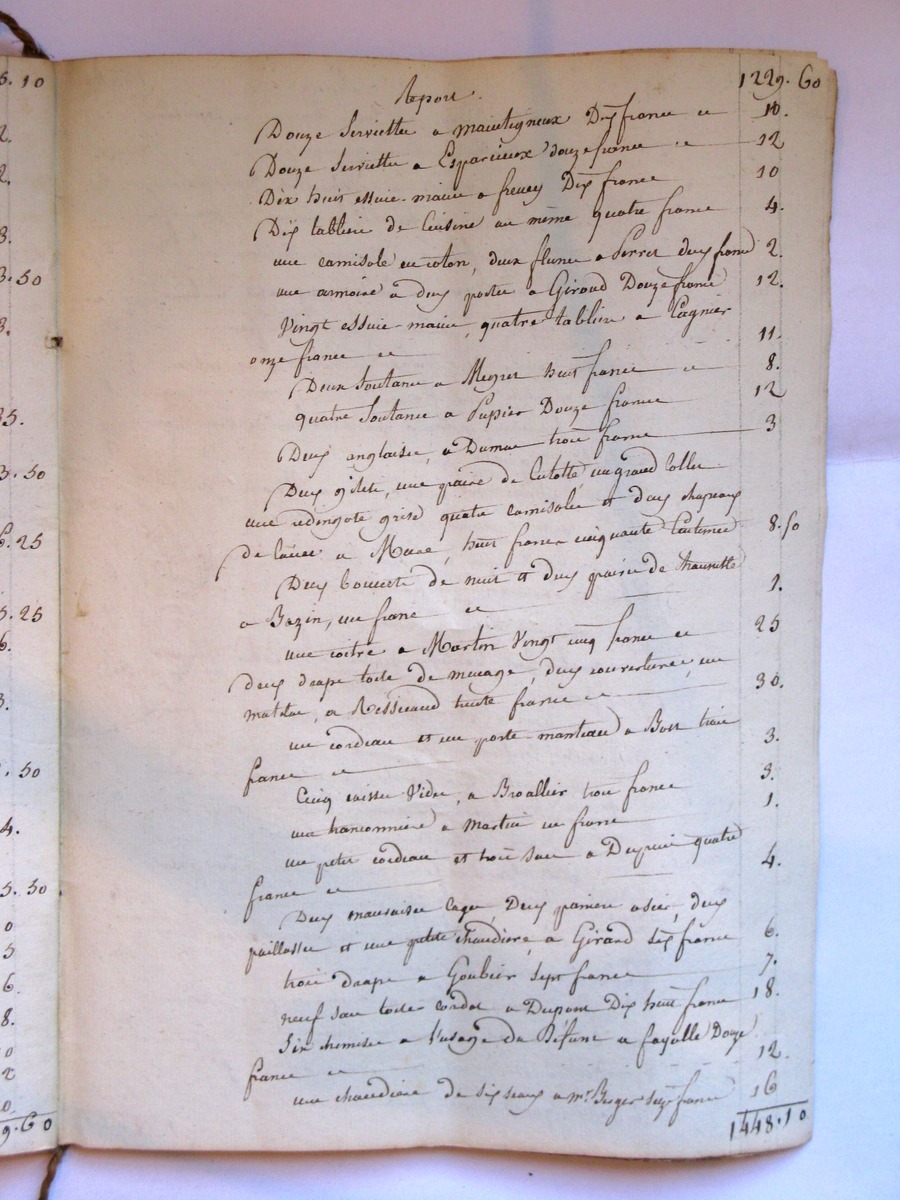 Report. 1229. 60
Douze Serviettes a Maintigneux Dix francs ci 10.
Douze Serviettes a Esparcieux douze francs ci 12
Dix huit essuie-mains a freney Dix francs 10
Dix tabliers de Cuisine au même quatre francs 4.
une camisole en coton, deux a Perret deux francs 2.
une armoire à deux portes a Giraud Douze francs 12.
Vingt essuie-mains, quatre tabliers a Cagnier
onze francs ci 11.
Deux Soutanes a Megret huit francs ci 8.
quatre Soutanes a Pupier Douze francs 12
Deux anglaises, a Dumas trois francs 3
Deux gilets, une paire de Culotte, un grand Collet
une redingote grise quatre camisoles et deux chapeaux
de a huit francs cinquante Centimes 8. 50
Deux bonnets de nuit et deux paires de Chaussettes
a Bazin, un franc ci 1.
une a Martin Vingt cinq francs ci 25
deux draps toile de ménage, deux couvertures, un
matelas, a Ressicaud trente francs ci 30.
un cordeau et un porte-manteau a Bost trois
francs ci 3.
Cinq caisses Vides, a Broallier trois francs 3.
une a Martin un franc 1.
un petit cordeau et trois sacs a Dupuis quatre
francs ci 4.
Deux mauvaises Cages, Deux paniers osier, deux
paillasses et une petite chaudière, a Girard six francs 6.
trois draps a Goubier sept francs 7.
neuf sacs toile cordat a Dupont Dix huit francs 18.
Six chemises a l'usage du Défunt a fayolle Douze
francs ci 12.
une chaudière de six seaux a Mr. Berger seize francs 16
1448. 10
5. 10
2.
2.
3.
3. 50
3.
35.
3. 50
6. 25
5. 25
6.
3.
. 50
4.
5. 50
0
5
6.
8.
0
2
0
9. 60